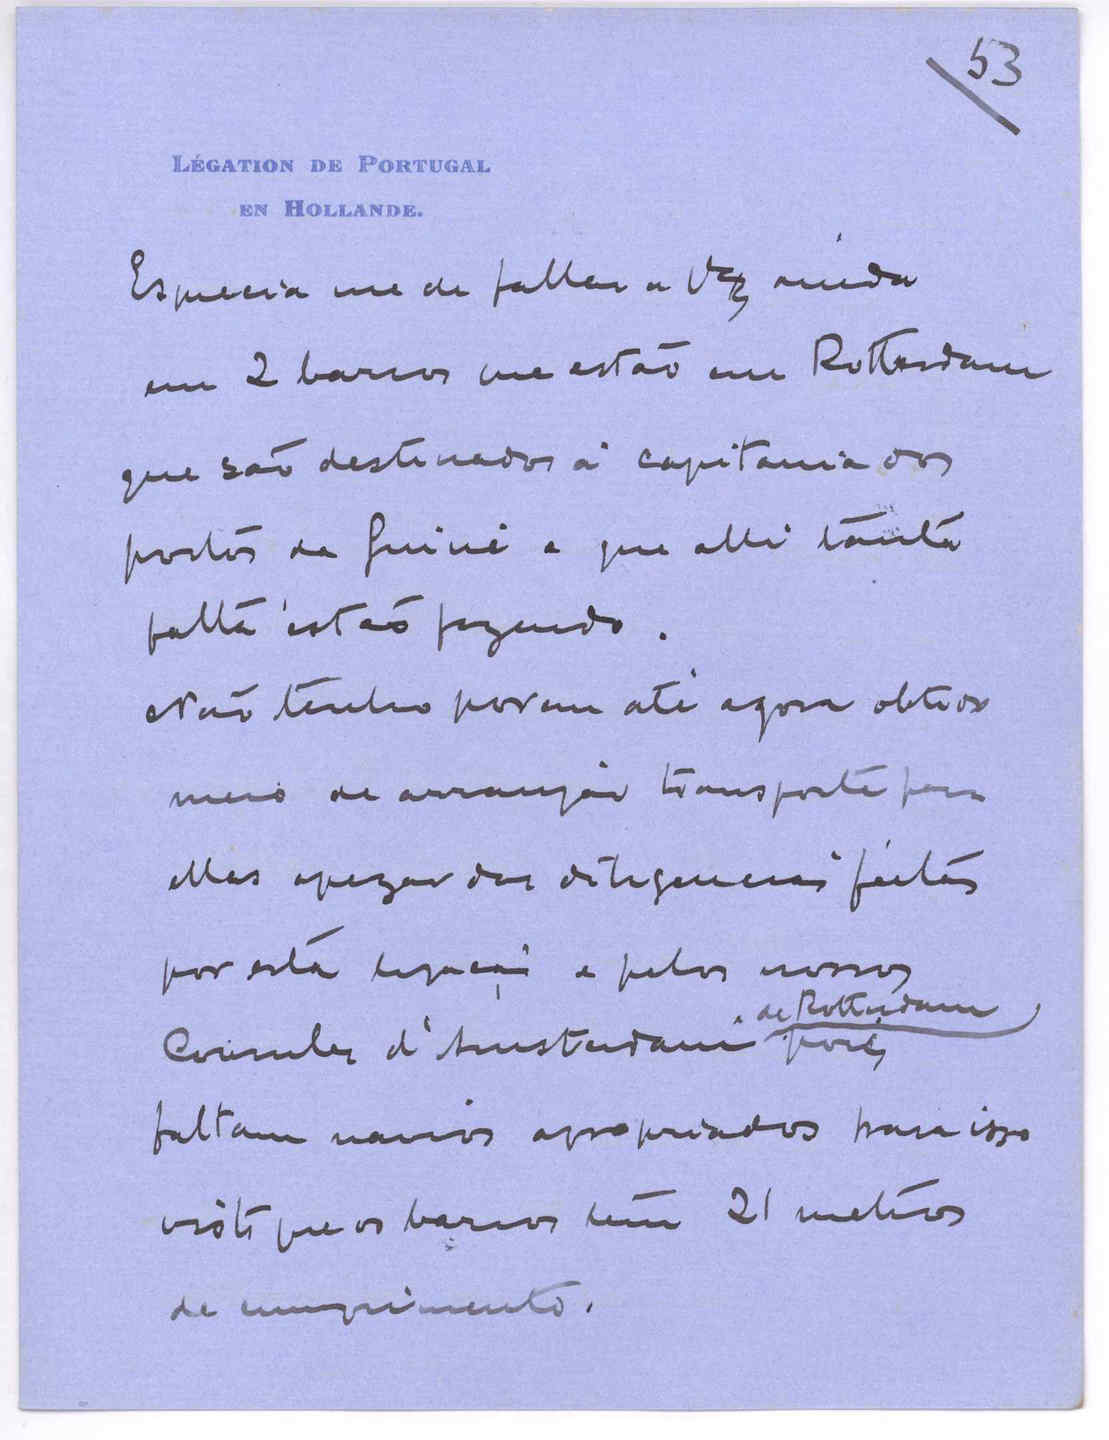 53
LÉGATION DE PORTUGAL
EN HOLLANDE.
Esquecia me de fallar a V. ainda
em 2 barcos que estão em Rotterdam
que são destinados á capitania dos
portos da Guiné e que alli tanta
falta estão fazendo.
Não tenho porem até agora obtido
meio de arranjar transporte para
elles apezar das diligencias feitas
por esta legação e pelos nossos
Consules d'Amsterdam e de Rotterdam, pois
faltam navios apropriados para isso
visto que os barcos teem 21 metros
de cumprimento.